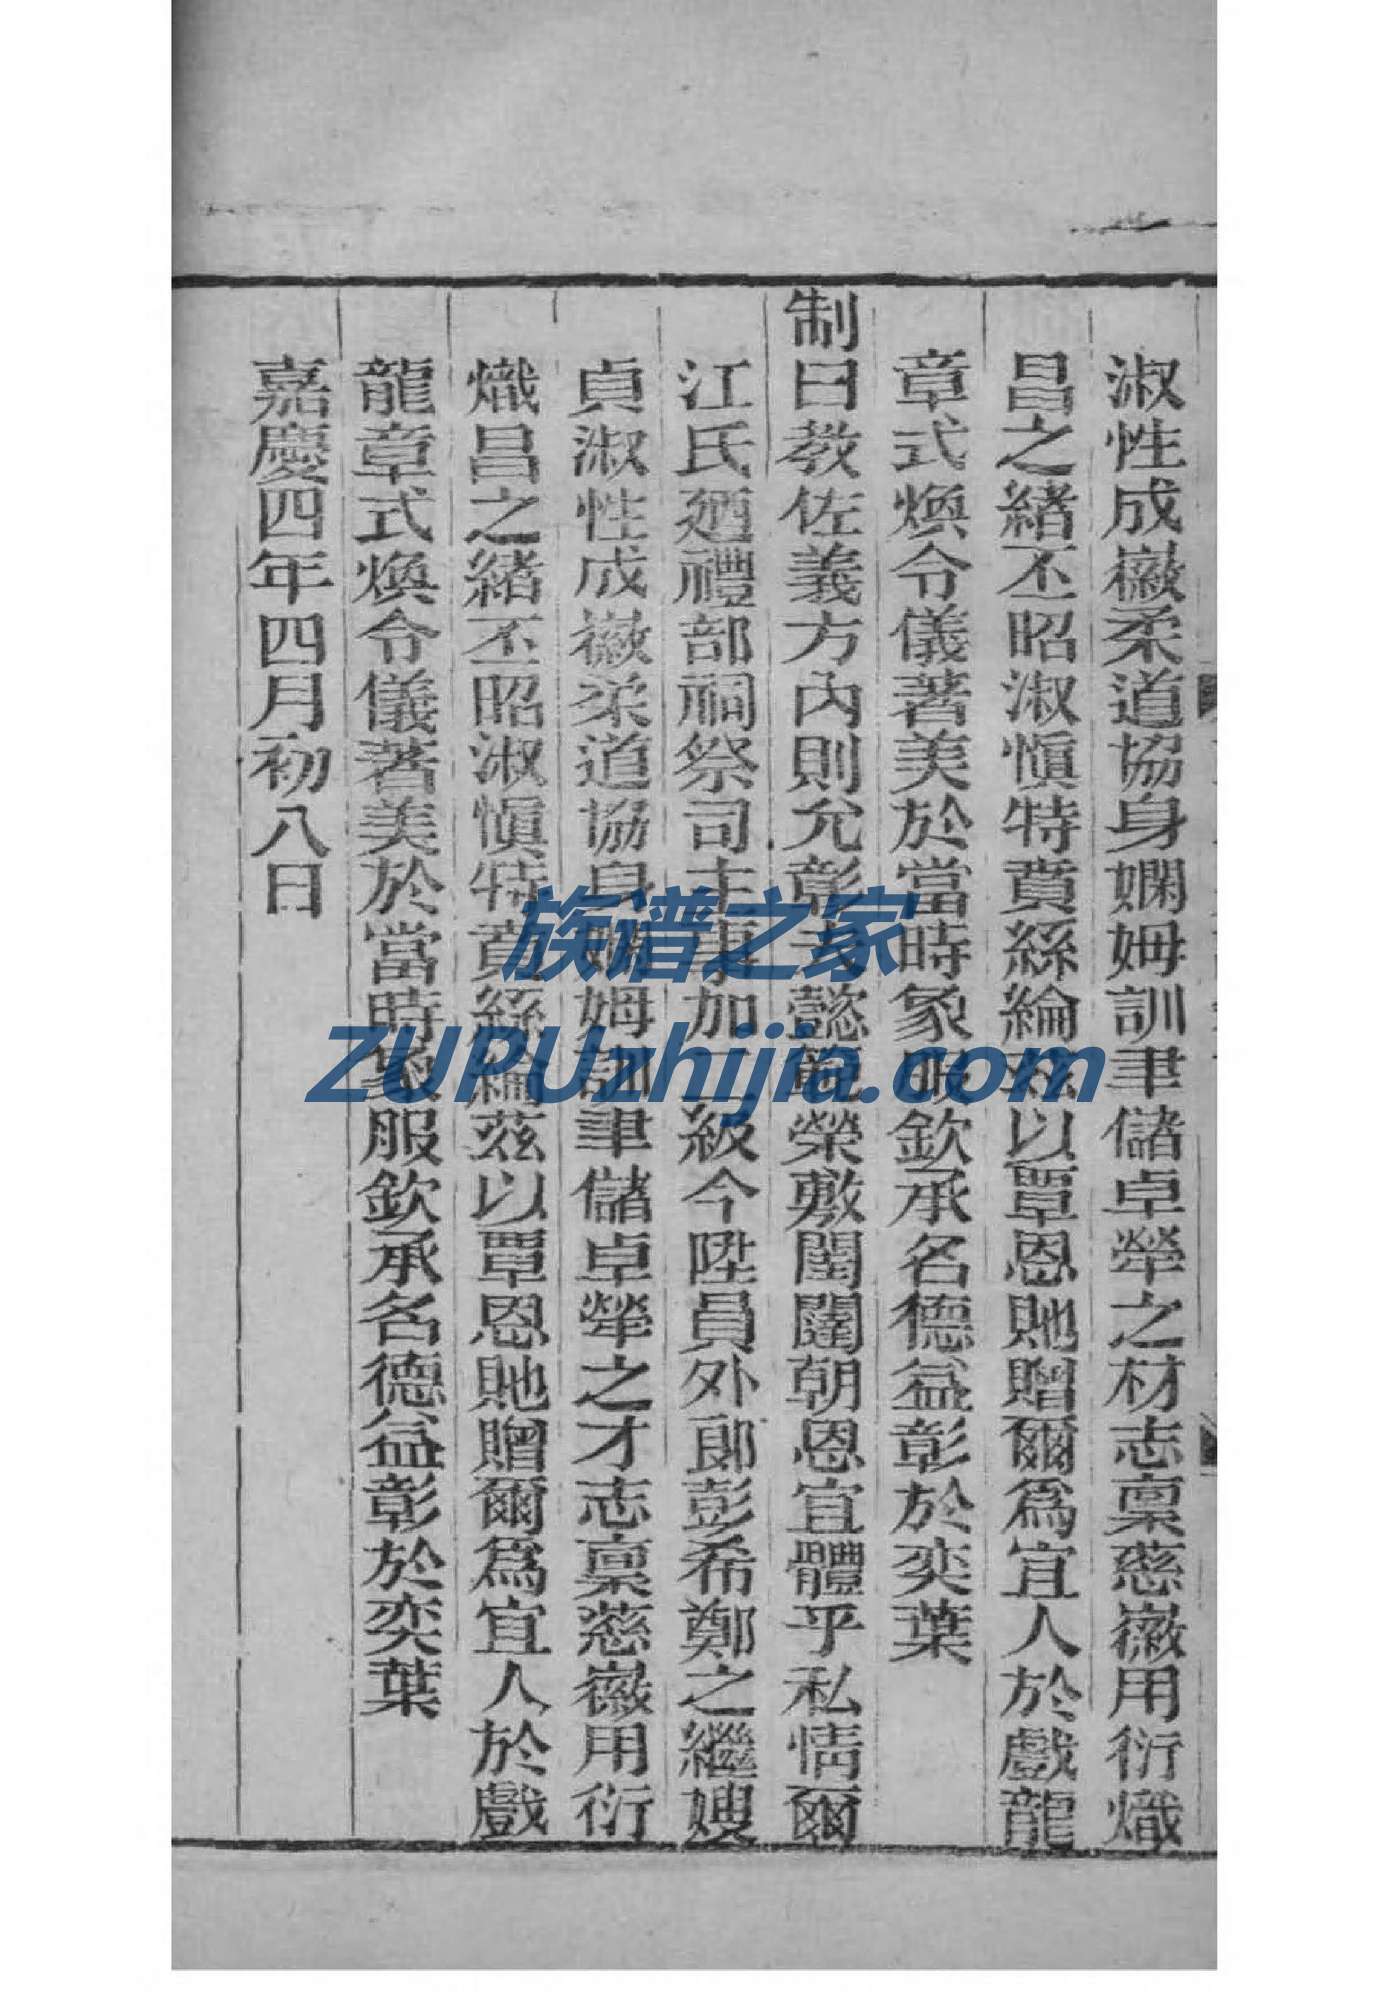 淑性成嶶柔道協身嫻姆訓聿儲卓犖之材志稟慈嶶用衍熾
昌之緒丕昭淑慎特賁絲綸兹以覃恩貤贈爾爲宜人於戲龍
章式煥令儀著美於當時象服欽承名德益彰於奕葉
制曰教佐義方內則允彰夫懿範榮敷閨闥朝恩宜體乎私情爾
江氏廼禮部祠祭司主事加一級今陞員外郎彭希鄭之繼嫂
貞淑性成嶶柔道協身嫻姆訓聿儲卓犖之才志稟慈嶶用衍
熾昌之緒丕昭淑愼特賁絲綸茲以覃恩貤贈爾爲宜人於戲
龍章式煥令儀著美於當時象服欽承名德益彰於奕葉
嘉慶四年四月初八日
族谱之家
ZUPUzhijia.com